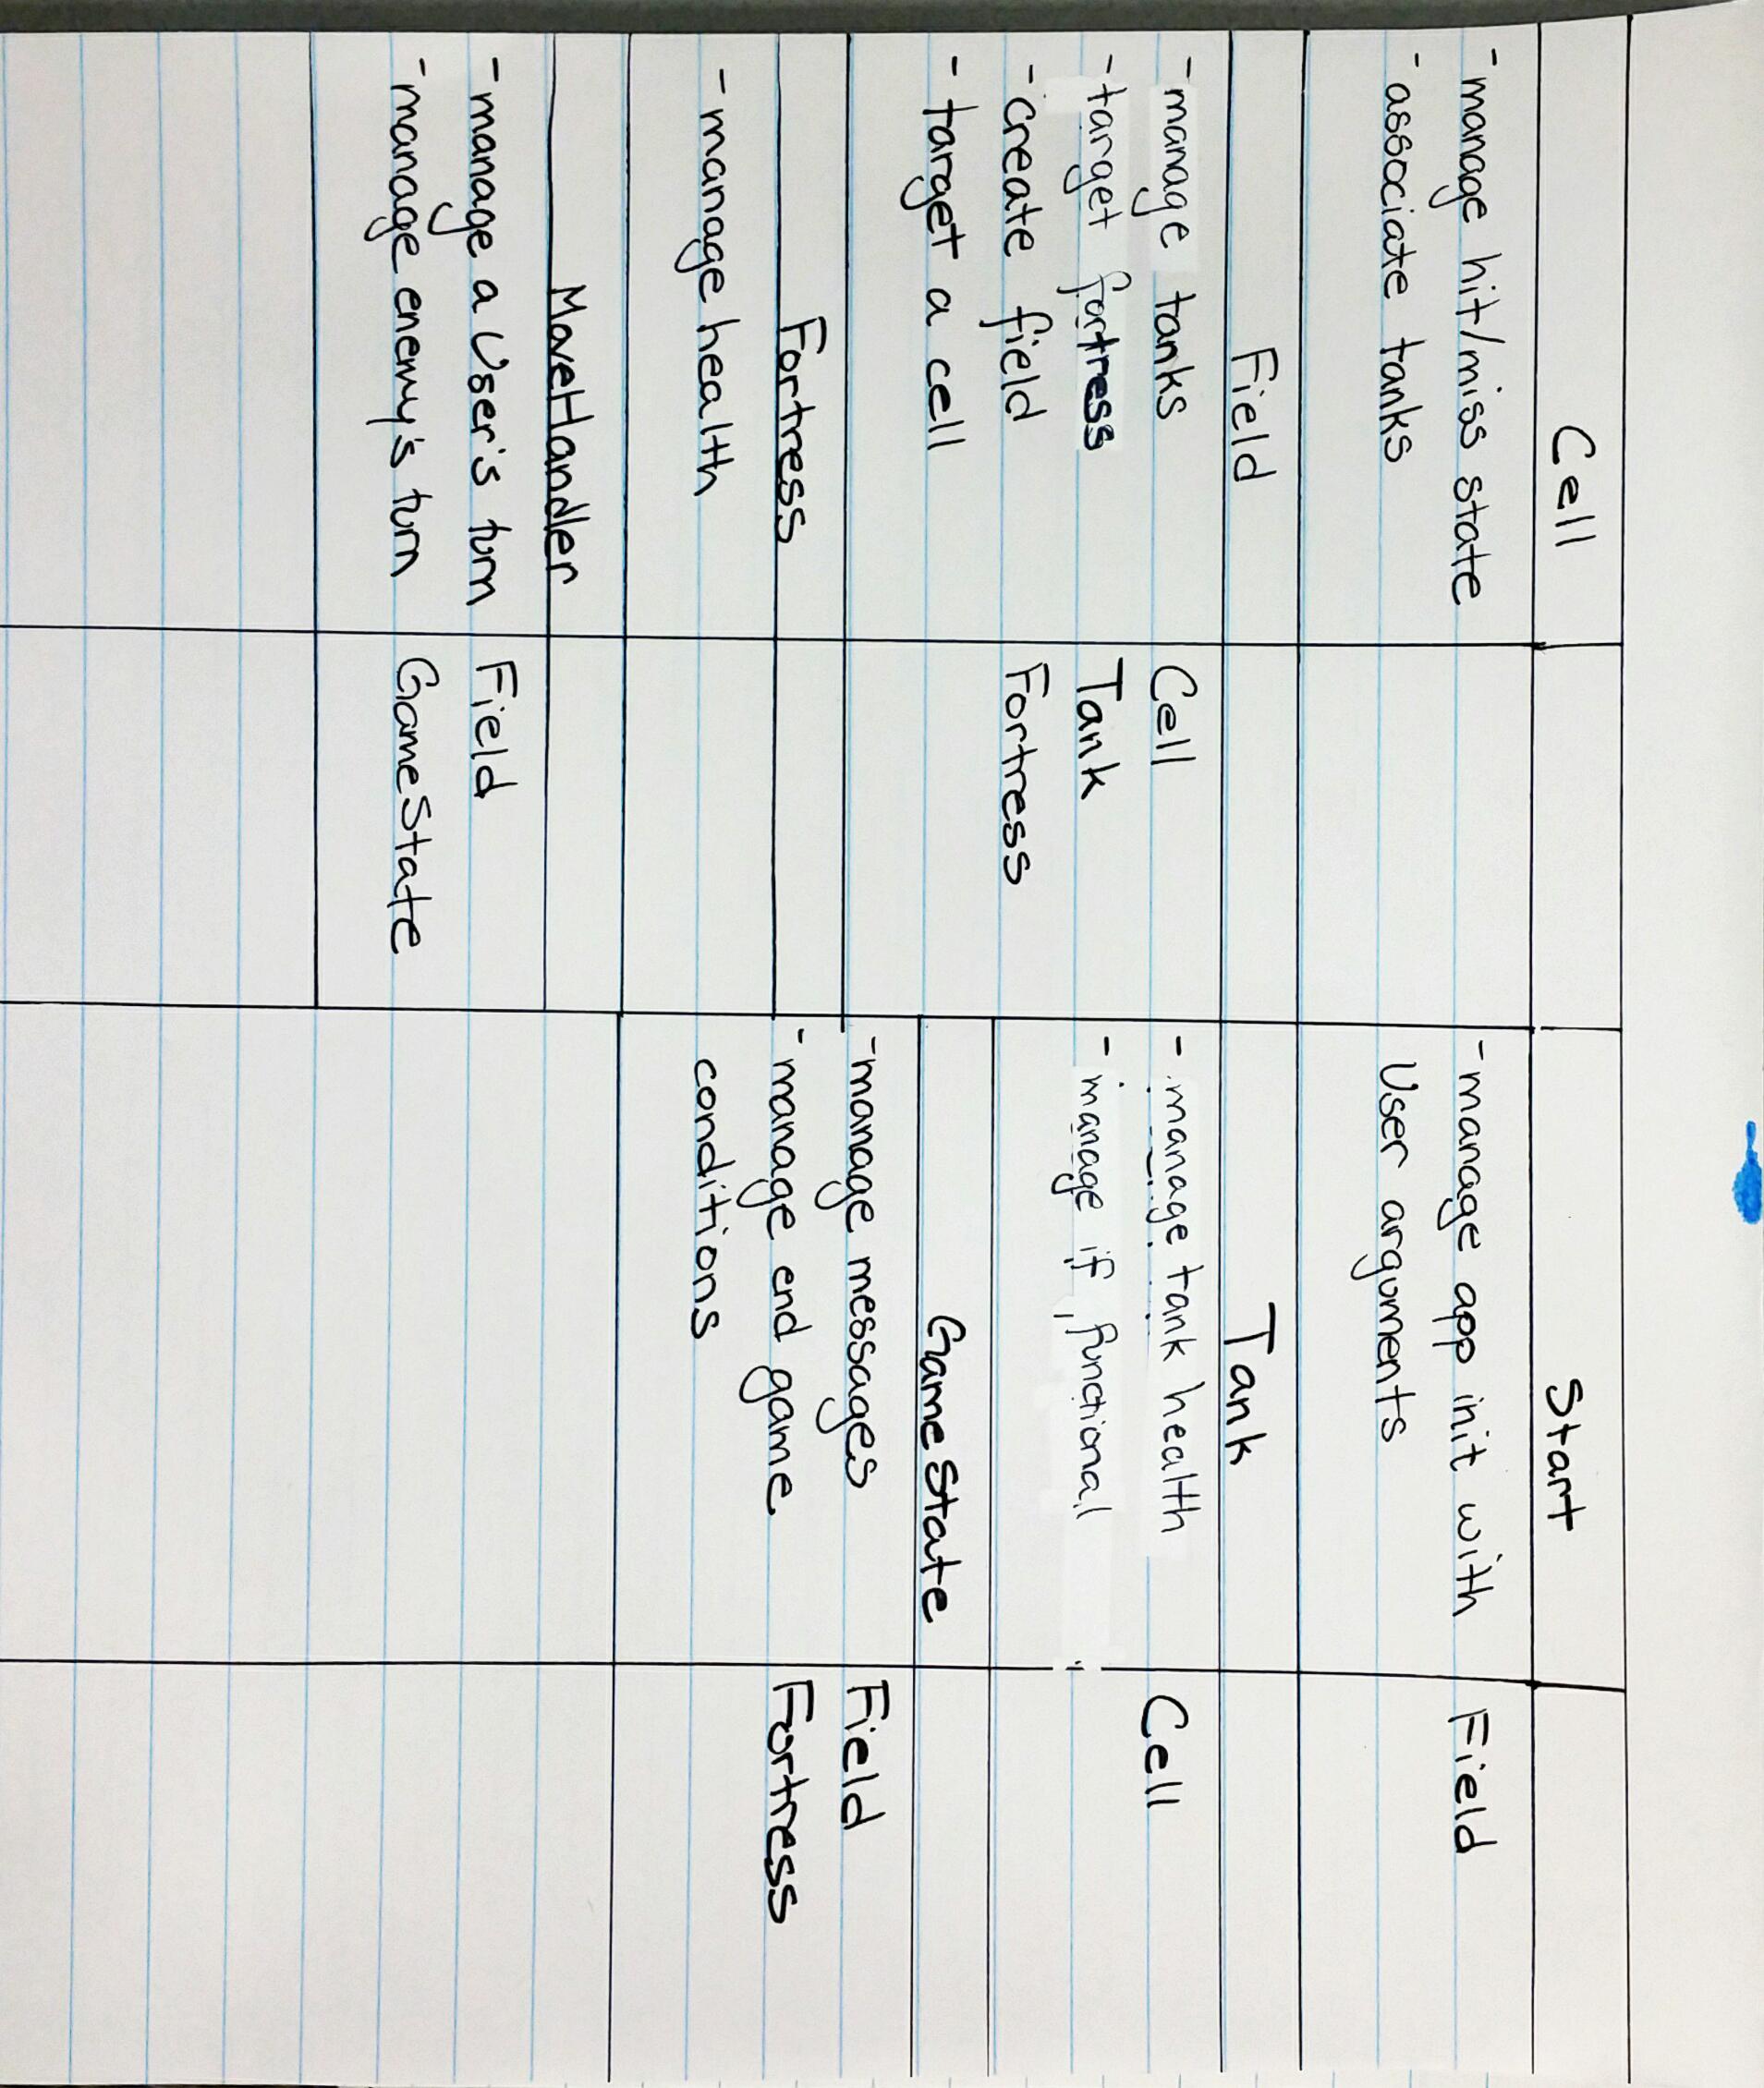 Cell
- manage hit/miss state
- associate tanks
Field
- manage tanks
- target fortress
- create field
- target a cell
Cell
Tank
Fortress
Fortress
- manage health
MoveHandler
- manage a User's turn
- manage enemy's turn
Field
GameState
Start
- manage app init with
User arguments
Field
Tank
- manage tank health
- manage if functional
Cell
GameState
- manage messages
- manage end game
conditions
Field
Fortress